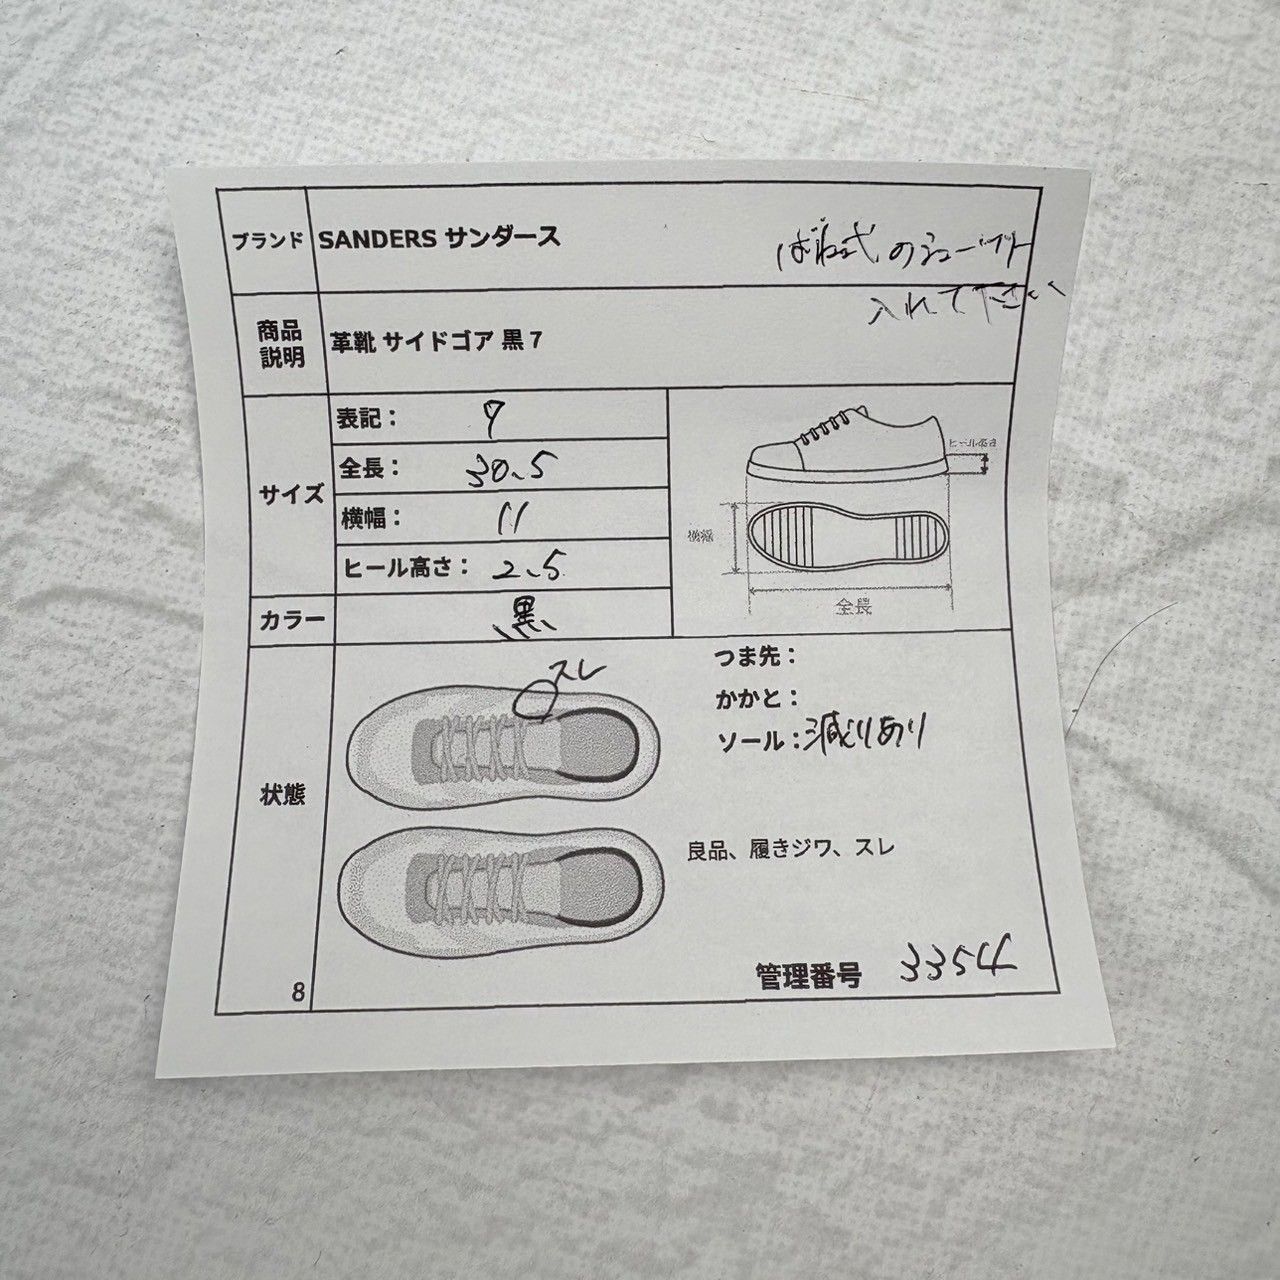 ブランド SANDERS サンダース
ばね式のシューツリー
入れて下さい
商品説明 革靴 サイドゴア 黒 7
サイズ
表記： 7
全長： 30.5
横幅： 11
ヒール高さ： 2.5
横幅
全長
カラー 黒
状態
スレ
つま先：
かかと：
ソール：減りあり
良品、履きジワ、スレ
管理番号 3354
8